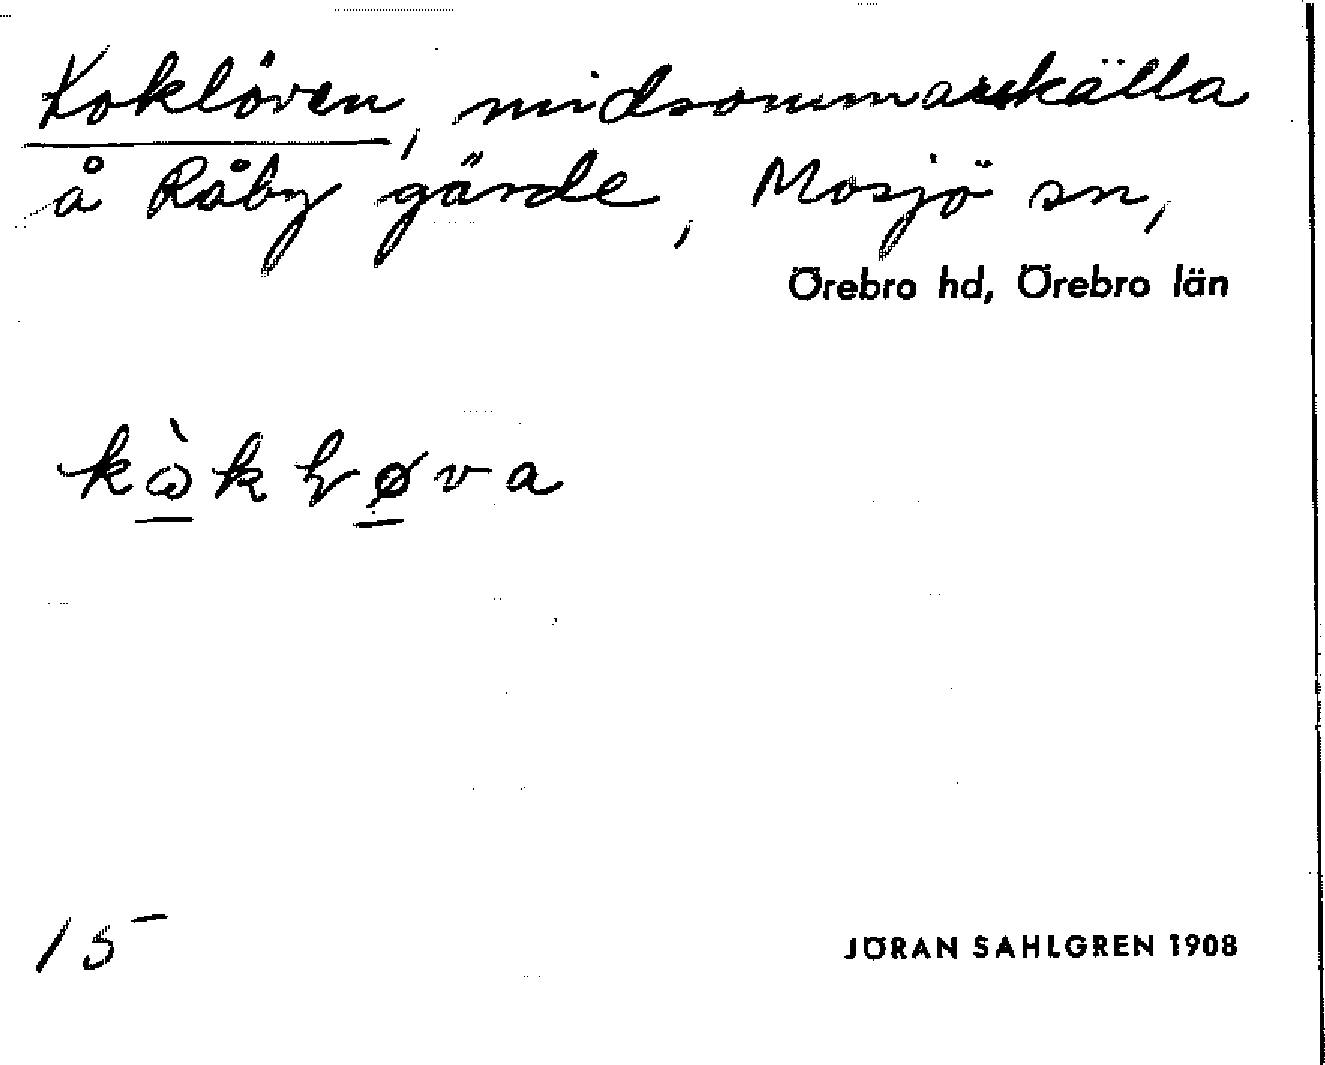 Koklöven, midsommarkälla
å Råby gärde, Mosjö sn,
Örebro hd, Örebro län
15
JÖRAN SAHLGREN 1908